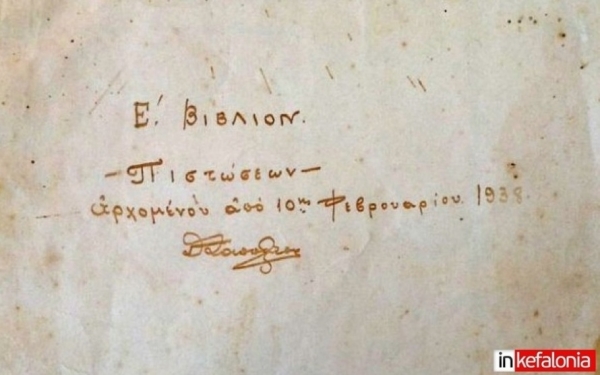 Ε΄. ΒΙΒΛΙΟΝ.
— Πιστώσεων —
ἀρχομένου ἀπό 10ης Φεβρουαρίου 1938.
inkefalonia